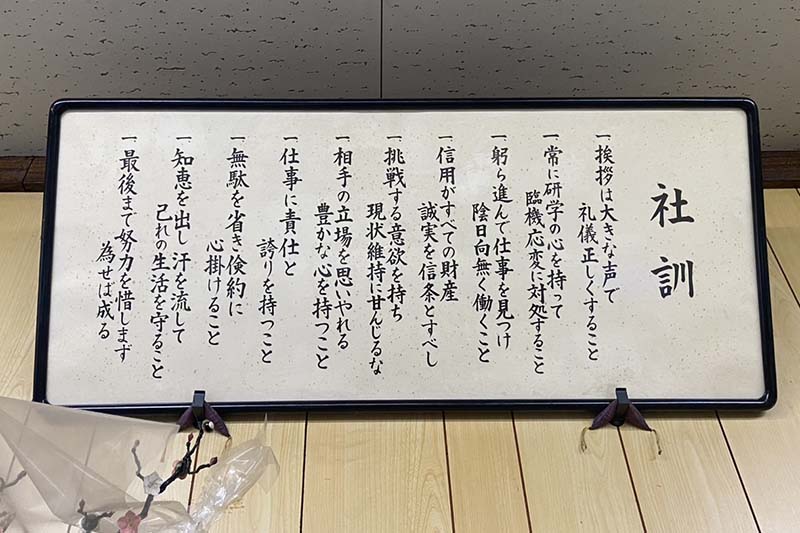 社訓
一 挨拶は大きな声で
礼儀正しくすること
一 常に研学の心を持って
臨機応変に対処すること
一 躬ら進んで仕事を見つけ
陰日向無く働くこと
一 信用がすべての財産
誠実を信条とすべし
一 挑戦する意欲を持ち
現状維持に甘んじるな
一 相手の立場を思いやれる
豊かな心を持つこと
一 仕事に責任と
誇りを持つこと
一 無駄を省き倹約に
心掛けること
一 知恵を出し汗を流して
己れの生活を守ること
一 最後まで努力を惜しまず
為せば成る